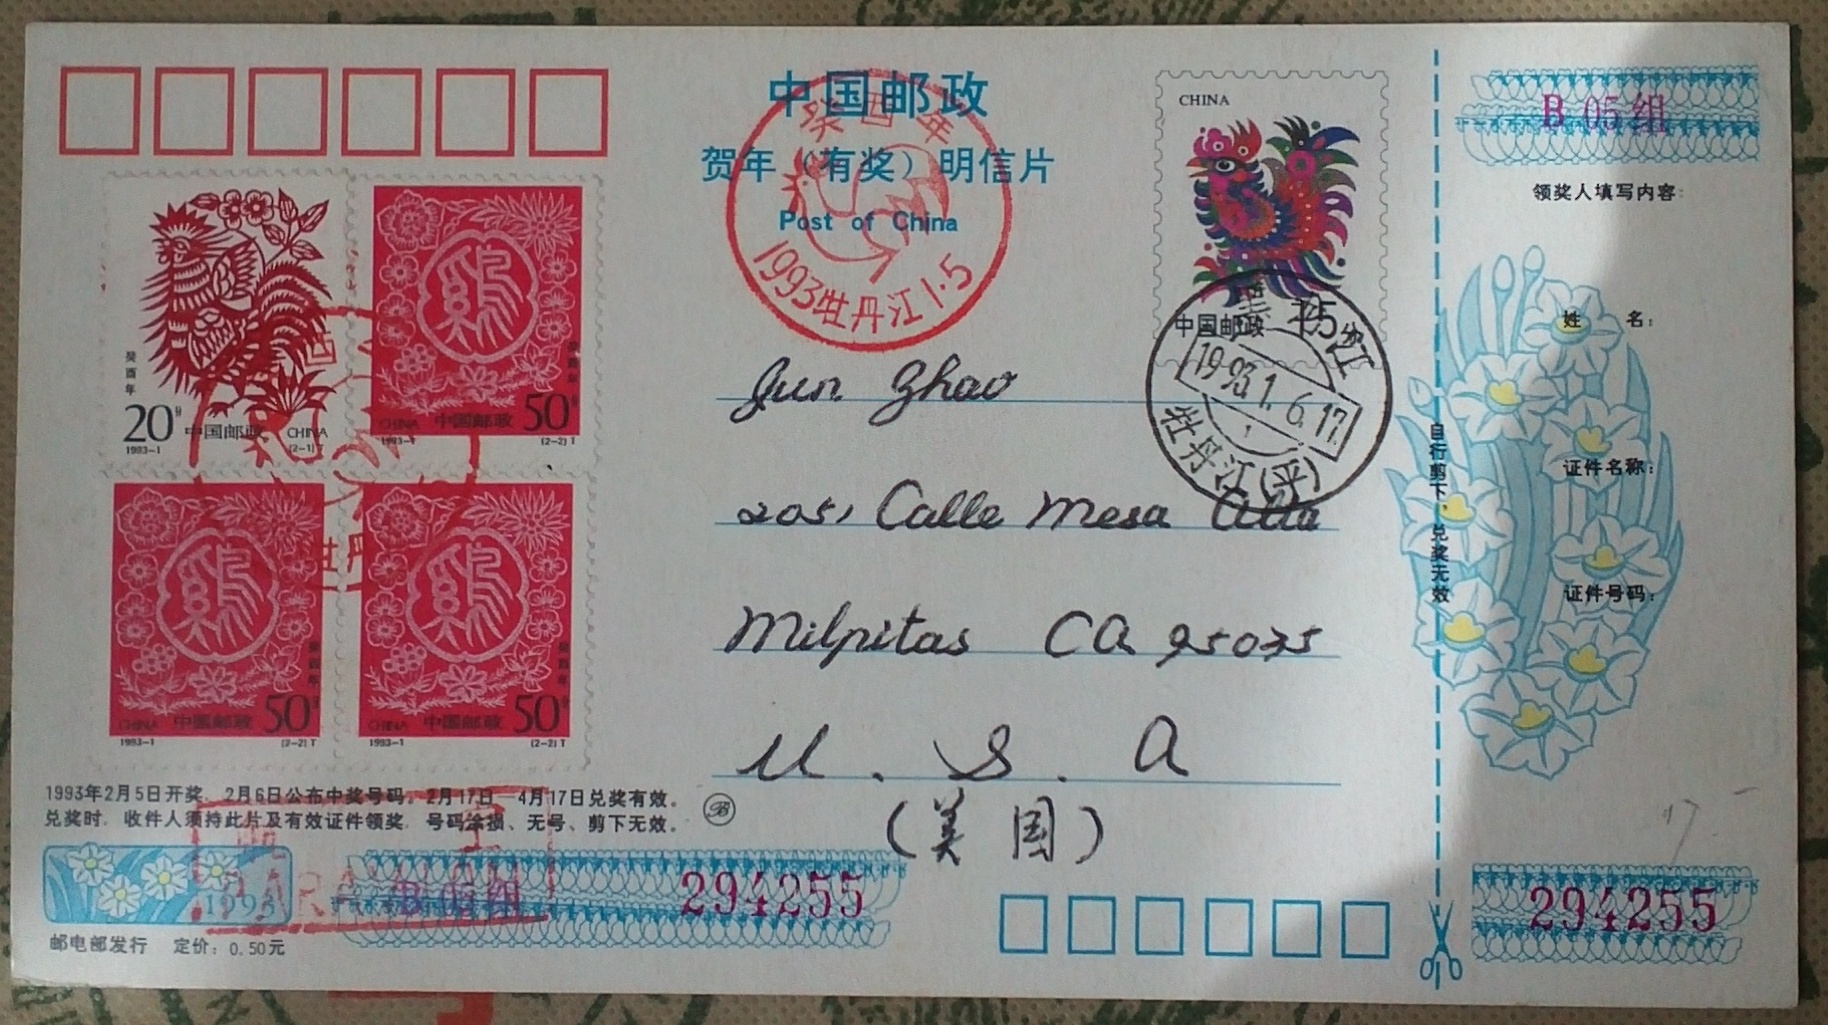 中国邮政
贺年（有奖）明信片
Post of China
癸酉年
1993牡丹江1·5
CHINA
中国邮政 15分
黑龙江
1993.1.6.17
牡丹江(平)
癸酉年
20分 中国邮政 CHINA
1993-1 (2-1)T
癸酉年
CHINA 中国邮政 50分
1993-1 (2-2)T
癸酉年
CHINA 中国邮政 50分
1993-1 (2-2)T
癸酉年
CHINA 中国邮政 50分
1993-1 (2-2)T
Jun Zhao
205, Calle Mesa Alta
Milpitas CA 95035
U. S. A
(美国)
1993年2月5日开奖。2月6日公布中奖号码。2月17日—4月17日兑奖有效。
兑奖时，收件人须持此片及有效证件领奖，号码涂损、无号、剪下无效。
B
1993
B 05组 294255
邮电部发行 定价：0.50元
自行剪下，兑奖无效
B 05组
领奖人填写内容：
姓 名：
证件名称：
证件号码：
294255